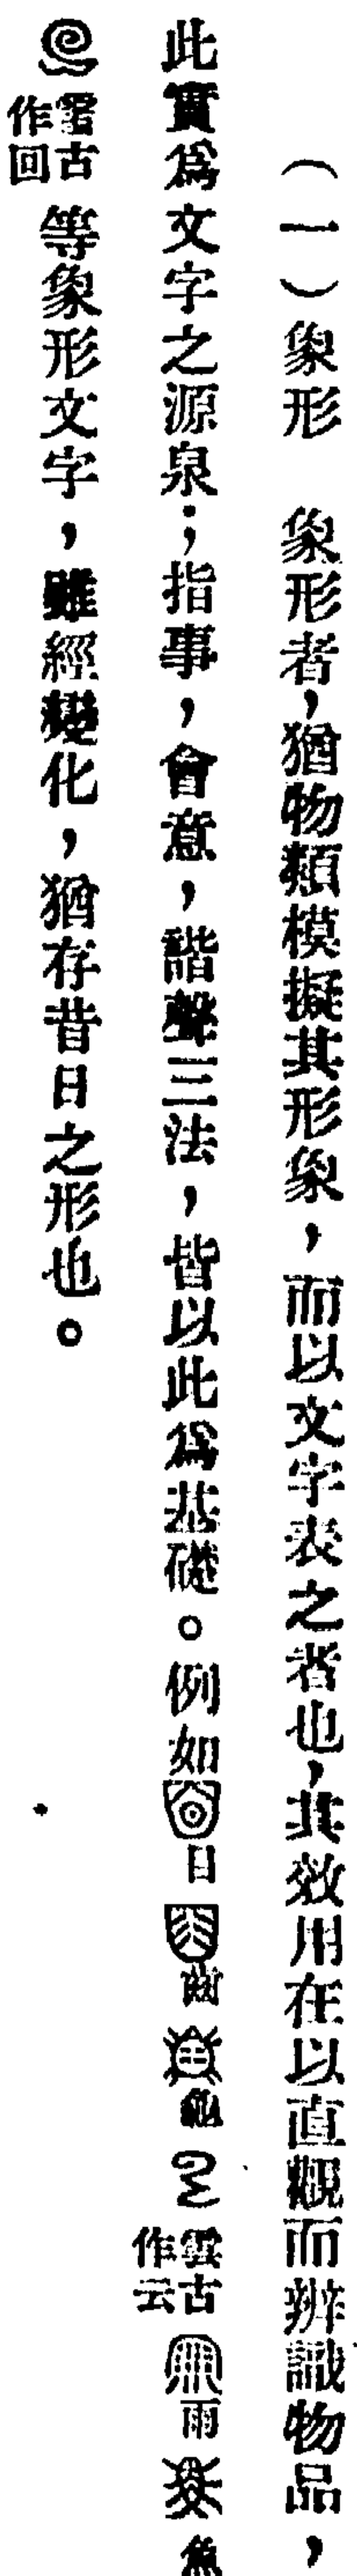 （一）象形　象形者，猶物類模擬其形象，而以文字表之者也，其效用在以直觀而辨識物品，
此實爲文字之源泉；指事，會意，諧聲三法，皆以此爲基礎。例如目齒龜雲古作云雨魚
雷古作回等象形文字，雖經變化，猶存昔日之形也。